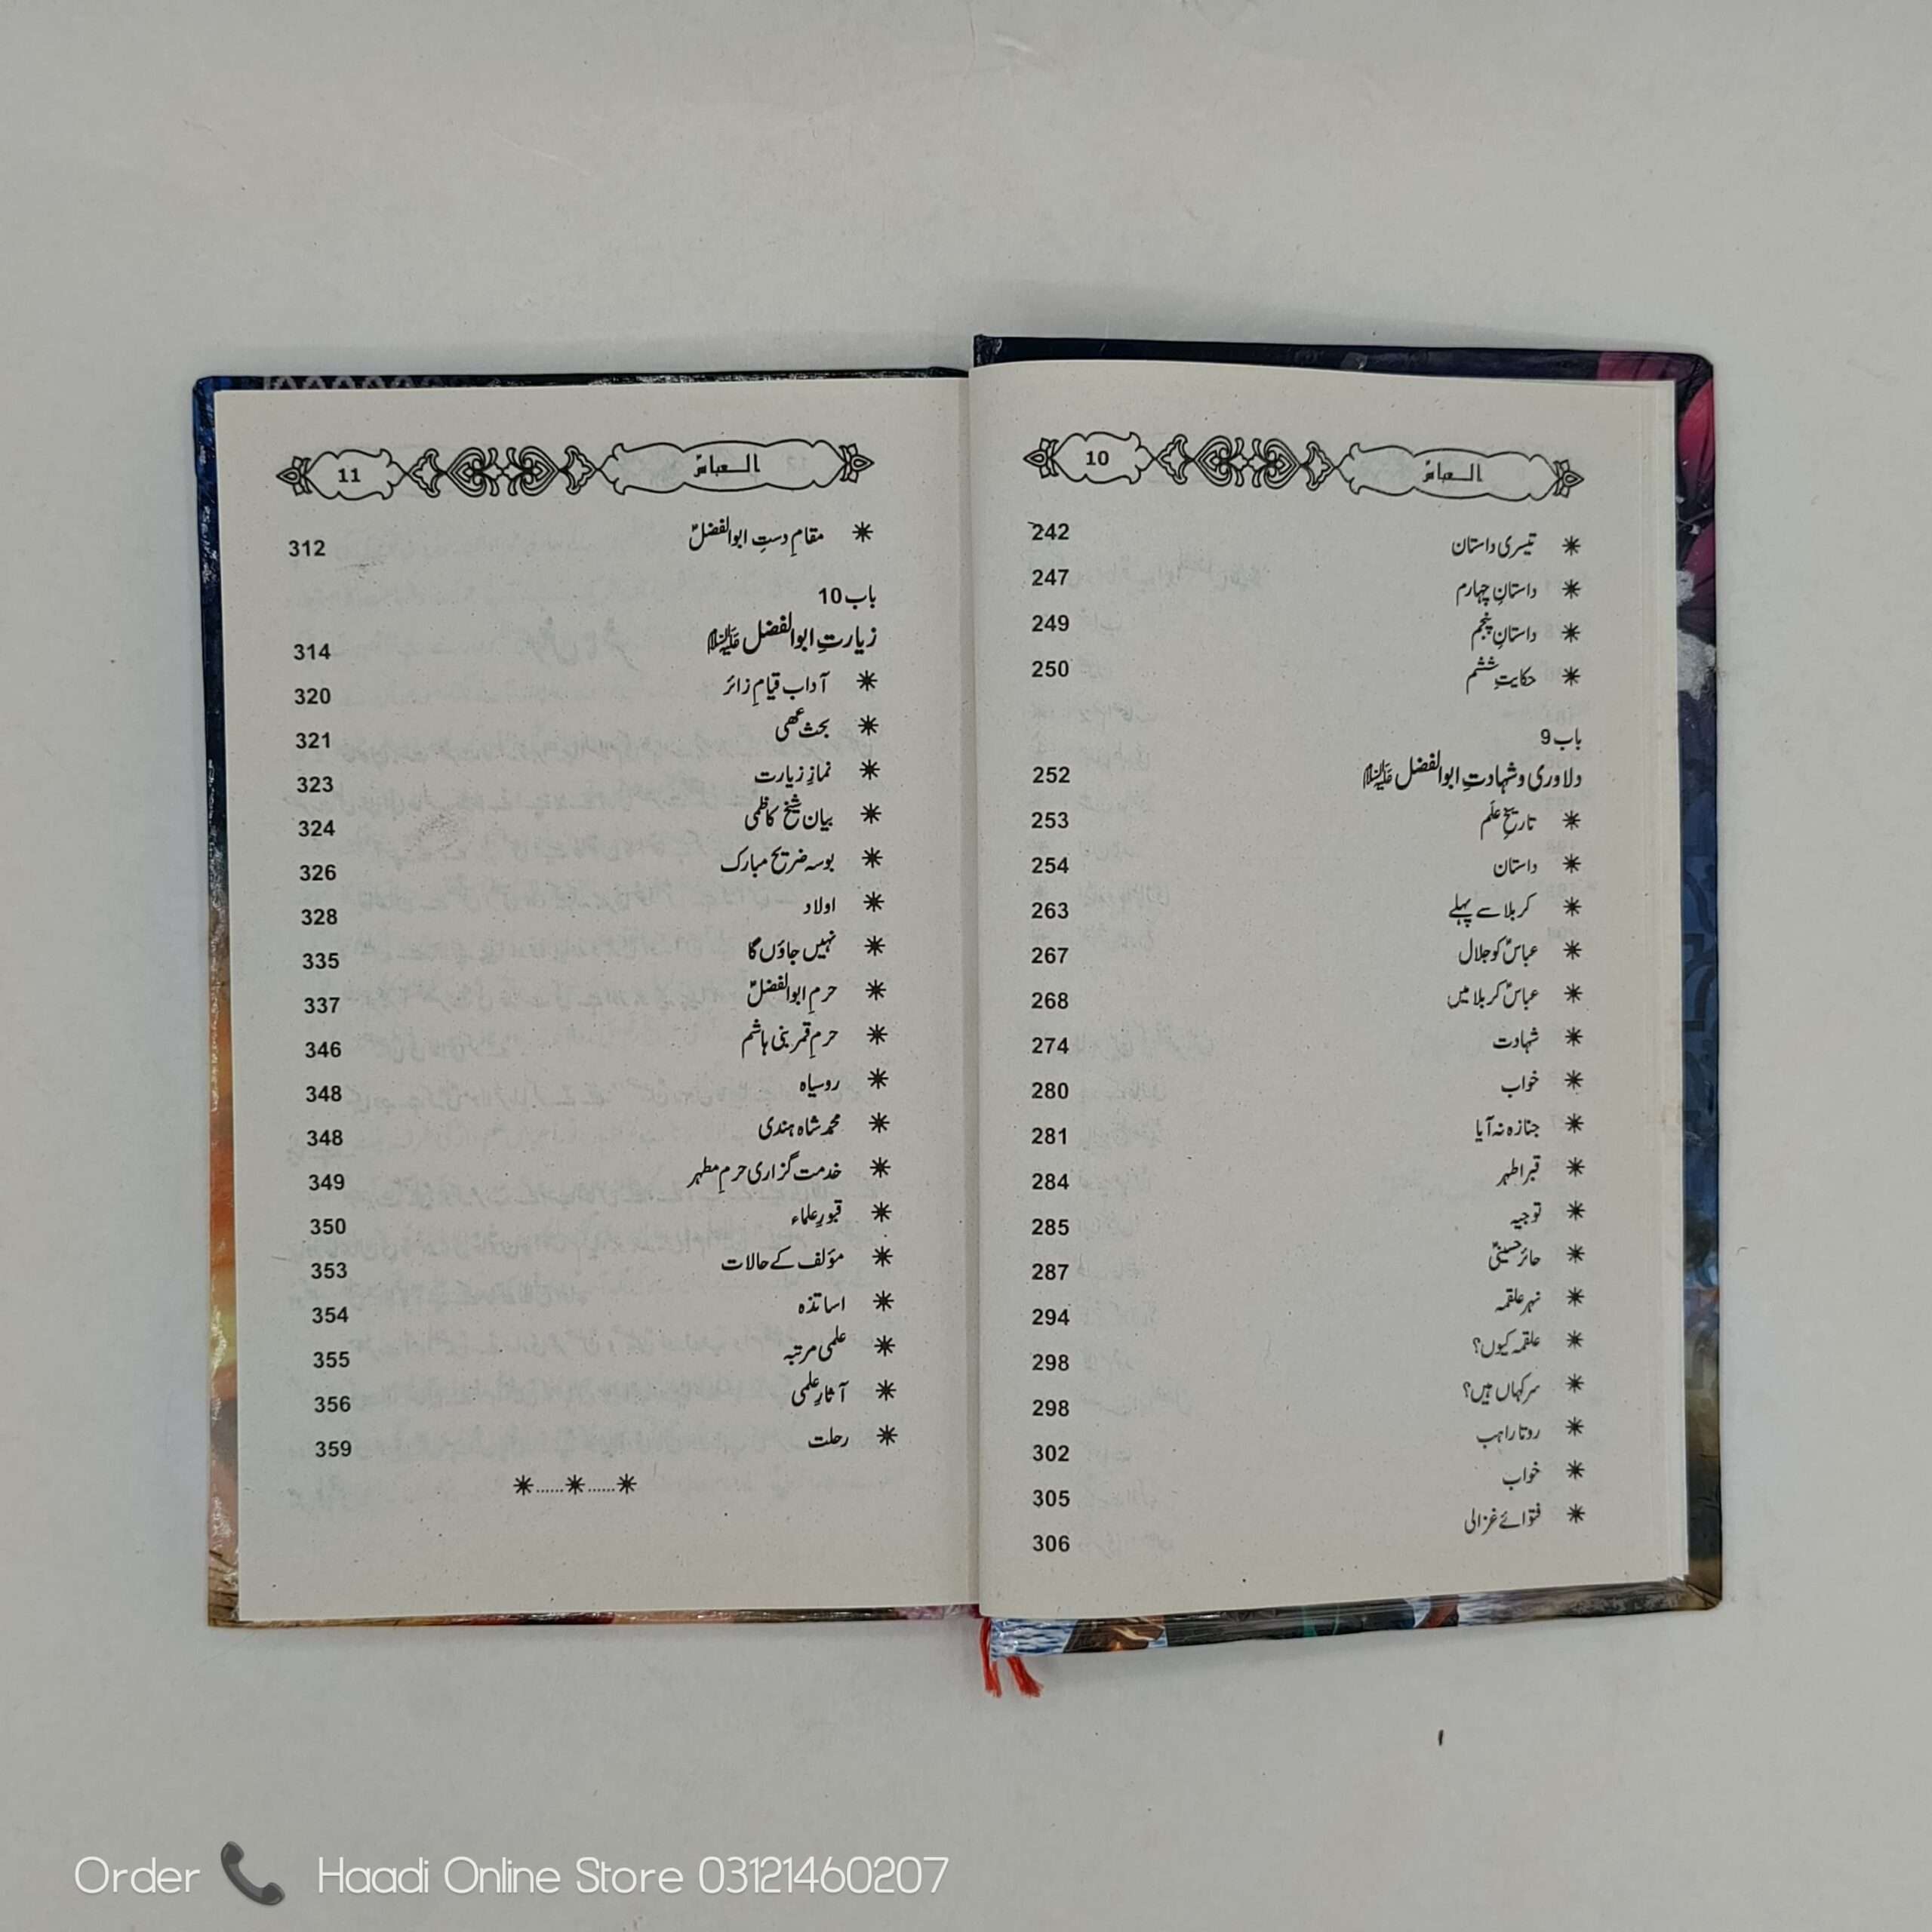 10 العباسؑ
تیسری داستان 242
داستانِ چہارم 247
داستانِ پنجم 249
حکایتِ ششم 250
باب 9
دلاوری و شہادتِ ابوالفضل علیہ السلام 252
تاریخِ علَم 253
داستان 254
کربلا سے پہلے 263
عباسؑ کو جلال 267
عباسؑ کربلا میں 268
شہادت 274
خواب 280
جنازہ نہ آیا 281
قبر اطہر 284
توجیہ 285
حائر حسینیؑ 287
نہر علقمہ 294
علقمہ کیوں؟ 298
سر کہاں ہیں؟ 298
روتا راہب 302
خواب 305
فتوائے غزالی 306
11 العباسؑ
مقامِ دستِ ابوالفضلؑ 312
باب 10
زیارتِ ابوالفضل علیہ السلام 314
آداب قیامِ زائر 320
بحث فقہی 321
نمازِ زیارت 323
بیان شیخ کاظمی 324
بوسہ ضریح مبارک 326
اولاد 328
نہیں جاؤں گا 335
حرمِ ابوالفضلؑ 337
حرمِ قمر بنی ہاشم 346
روسیاہ 348
محمد شاہ ہندی 348
خدمت گزاری حرمِ مطہر 349
قبورِ علماء 350
مؤلف کے حالات 353
اساتذہ 354
علمی مرتبہ 355
آثارِ علمی 356
رحلت 359
Order Haadi Online Store 03121460207